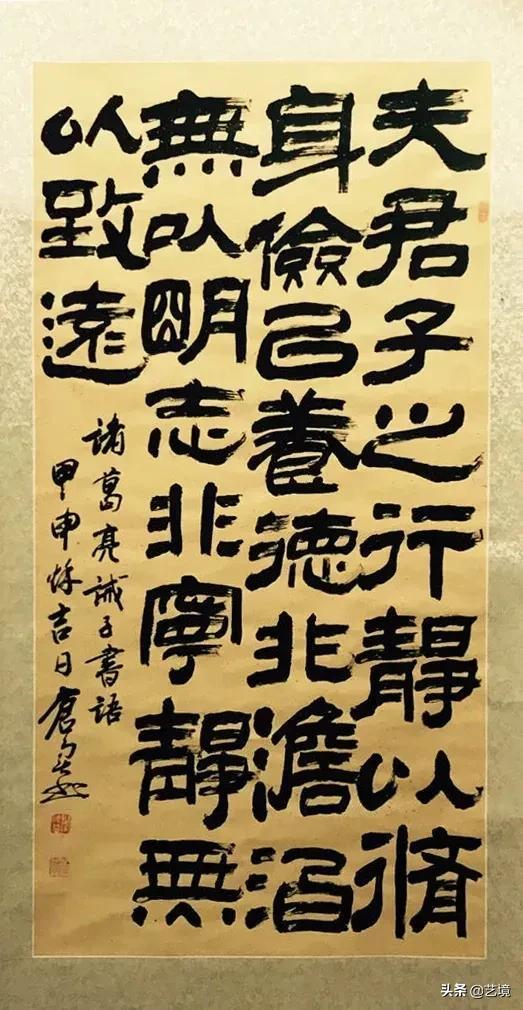 夫君子之行靜以脩
身儉㠯養德非澹泊
無以朙志非寧靜無
以致遠
諸葛亮誡子書語
甲申秌吉日
头条 @艺境